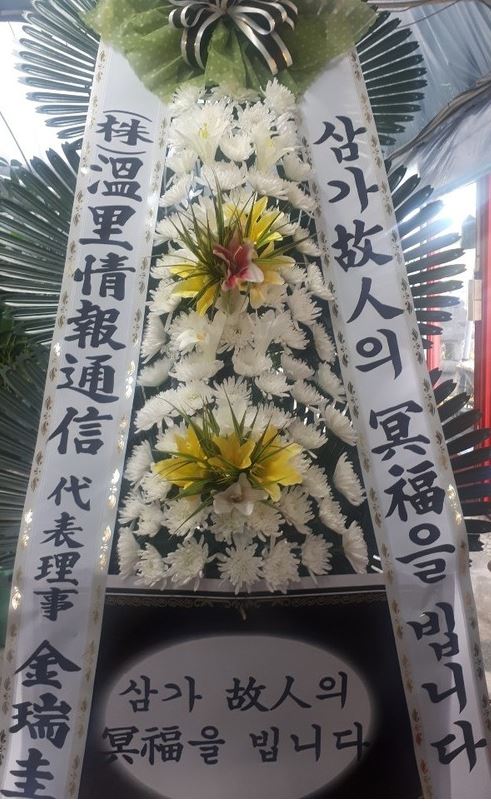 삼가 故人의 冥福을 빕니다
(株)溫里情報通信 代表理事 金瑞圭
삼가 故人의
冥福을 빕니다